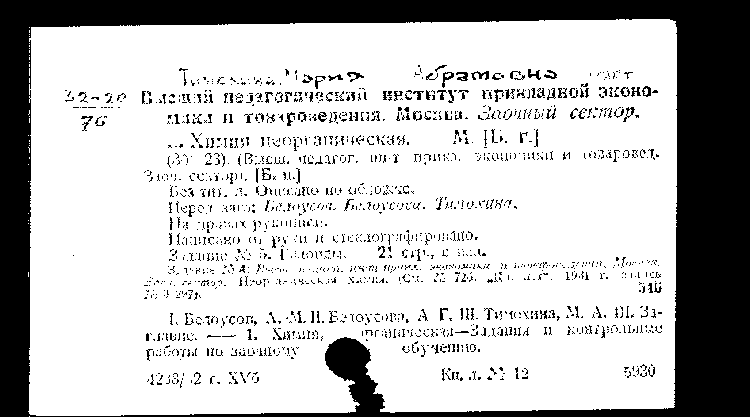 Тимохина Мария Абрамовна
32-20 Высший педагогический институт прикладной эконо-
76 мики и товароведения. Москва. Заочный сектор.
... Химия неорганическая. М. [Б. г.]
(30 23). (Высш. педагог. ин-т прикл. экономики и товаровед.
Заоч. сектор). [Б. ц.]
Без тит. л. Описано по обложке.
Перед загл: Белоусов. Белоусова. Тимохина.
На правах рукописи.
Написано от руки и стеклографировано.
Задание № 5. Галоиды. 21 стр., с илл.
Задание № 4: Высш. педагог. инст прикл. экономики и товароведения. Москва.
Заоч. сектор. Неорганическая химия. 1931 г. запись
546
I. Белоусов, А. М. II. Белоусова, А. Г. III. Тимохина, М. А. III. За-
главие. — 1. Химия, органическая—Задания и контрольные
работы по заочному обучению.
г. XVб Кн. л. № 12 5930